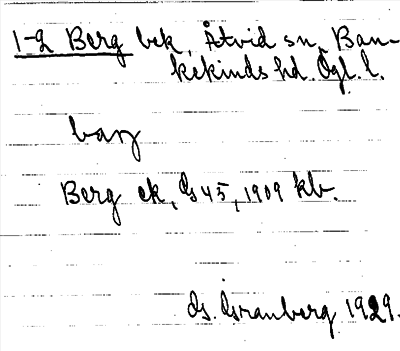 1-2 Berg bek, Åtvid sn, Ban-
kekinds hd. Ögl. l.
barj
Berg ek, Gs 45, 1909 kb.
Gs. Granberg 1929.